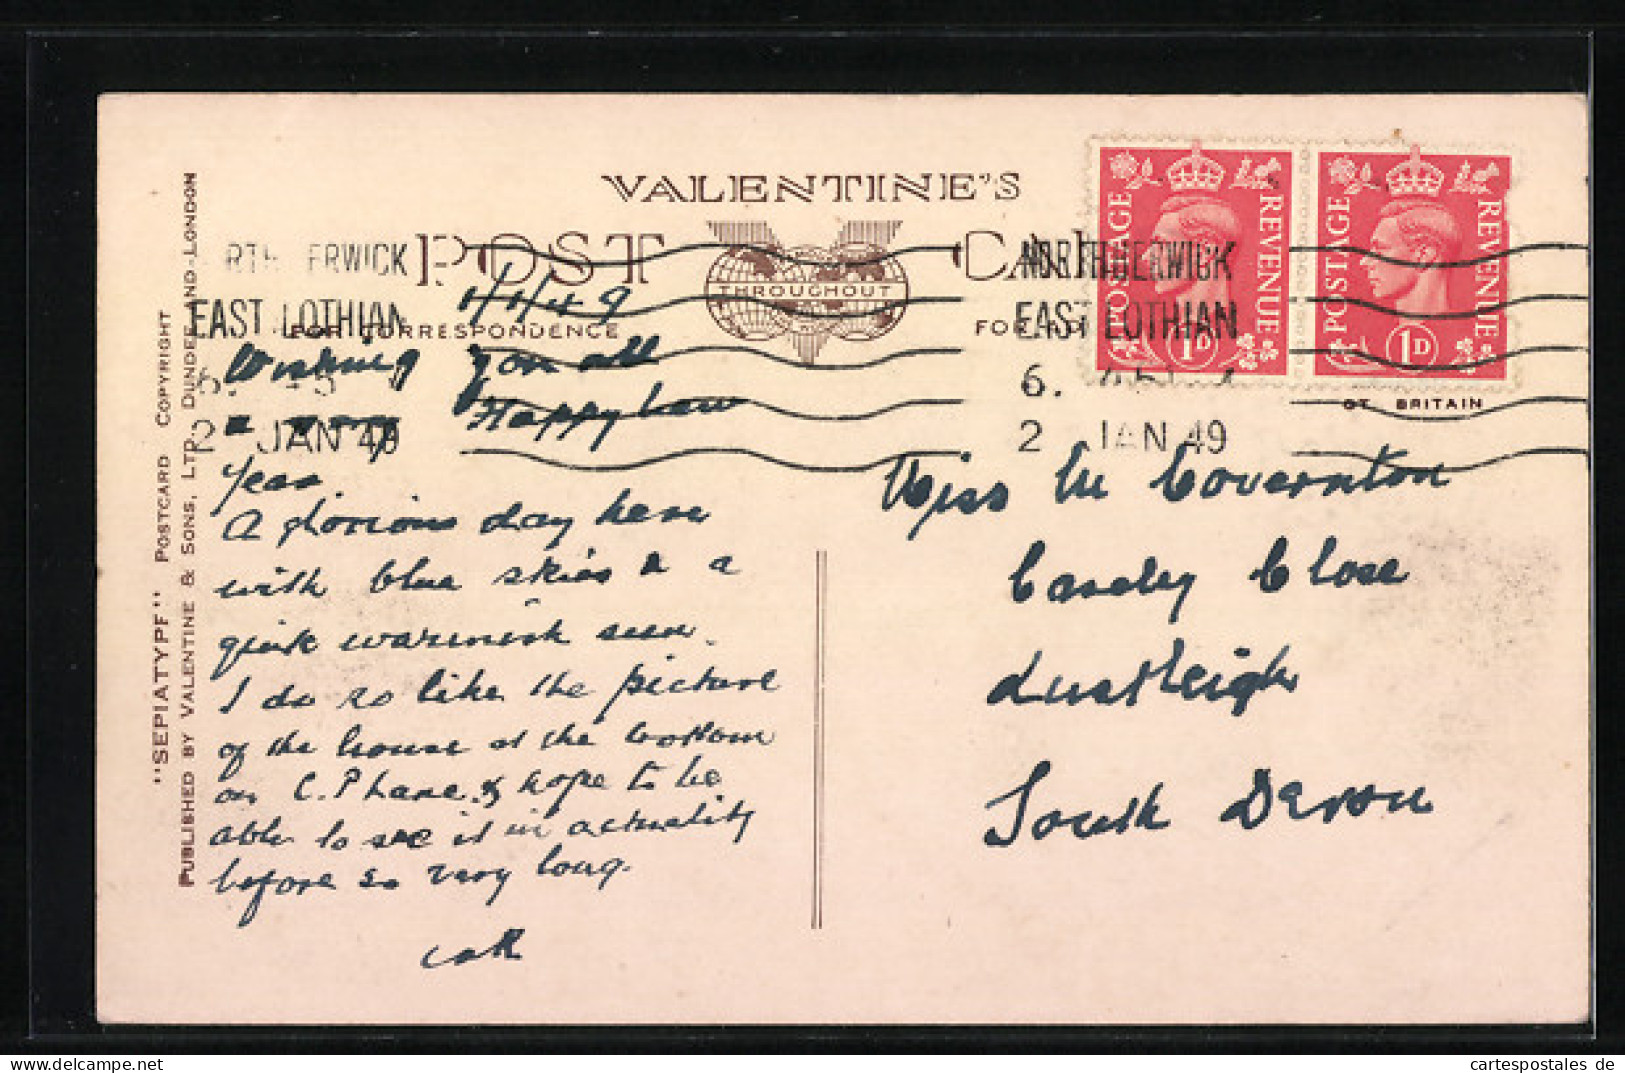 VALENTINE'S
POST CARD
THROUGHOUT
FOR CORRESPONDENCE
NORTH BERWICK
EAST LOTHIAN
6.
2 JAN 49
NORTH BERWICK
EAST LOTHIAN
6.
2 JAN 49
POSTAGE REVENUE
1D
POSTAGE REVENUE
1D
GT. BRITAIN
"SEPIATYPE" POSTCARD COPYRIGHT
PUBLISHED BY VALENTINE & SONS, LTD., DUNDEE AND LONDON
1/1/49
Wishing you all
a very Happy New
Year
A glorious day here
with blue skies & a
quite warmish sun.
I do so like the picture
of the house at the bottom
of C. Phane & hope to be
able to see it in actuality
before so very long.
Miss M Covernton
Caseley Close
Lustleigh
South Devon
cartespostales de